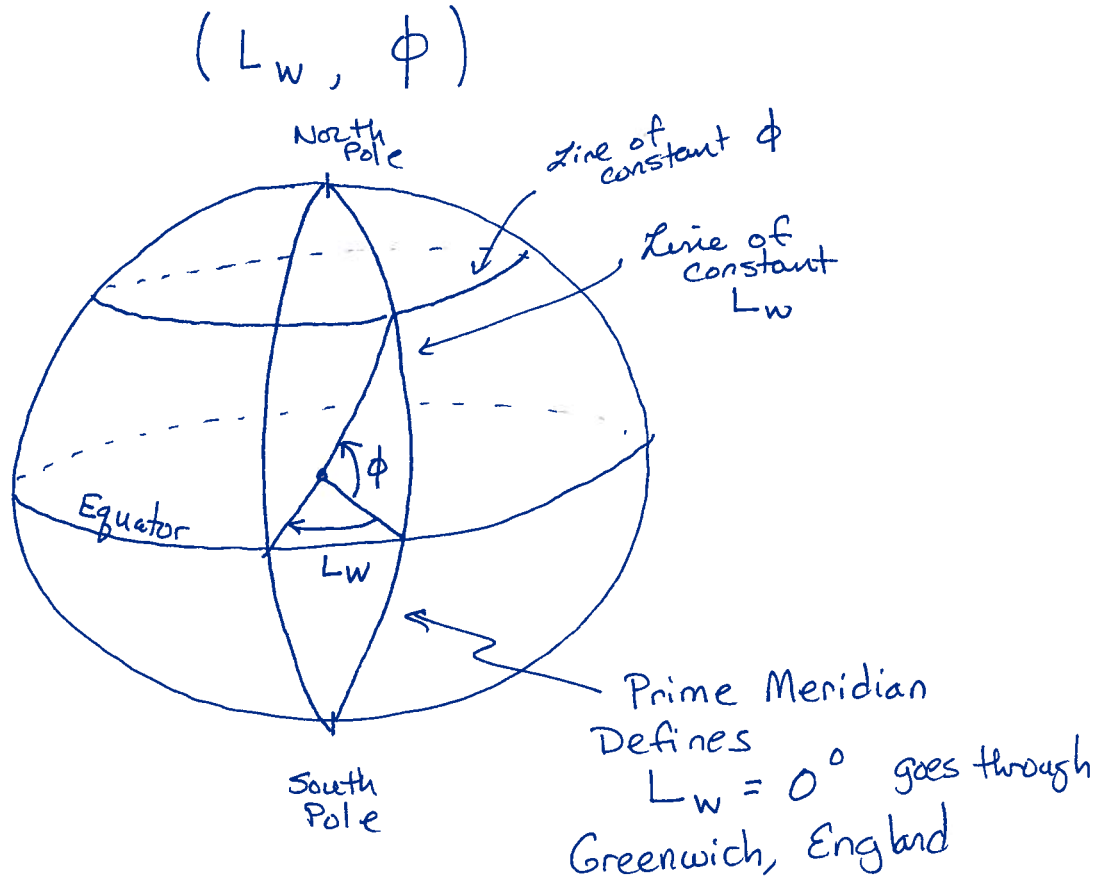 (L_w, ϕ)
North
Pole
Line of
constant ϕ
Line of
constant
L_w
ϕ
Equator
L_w
Prime Meridian
Defines
L_w = 0° goes through
Greenwich, England
South
Pole